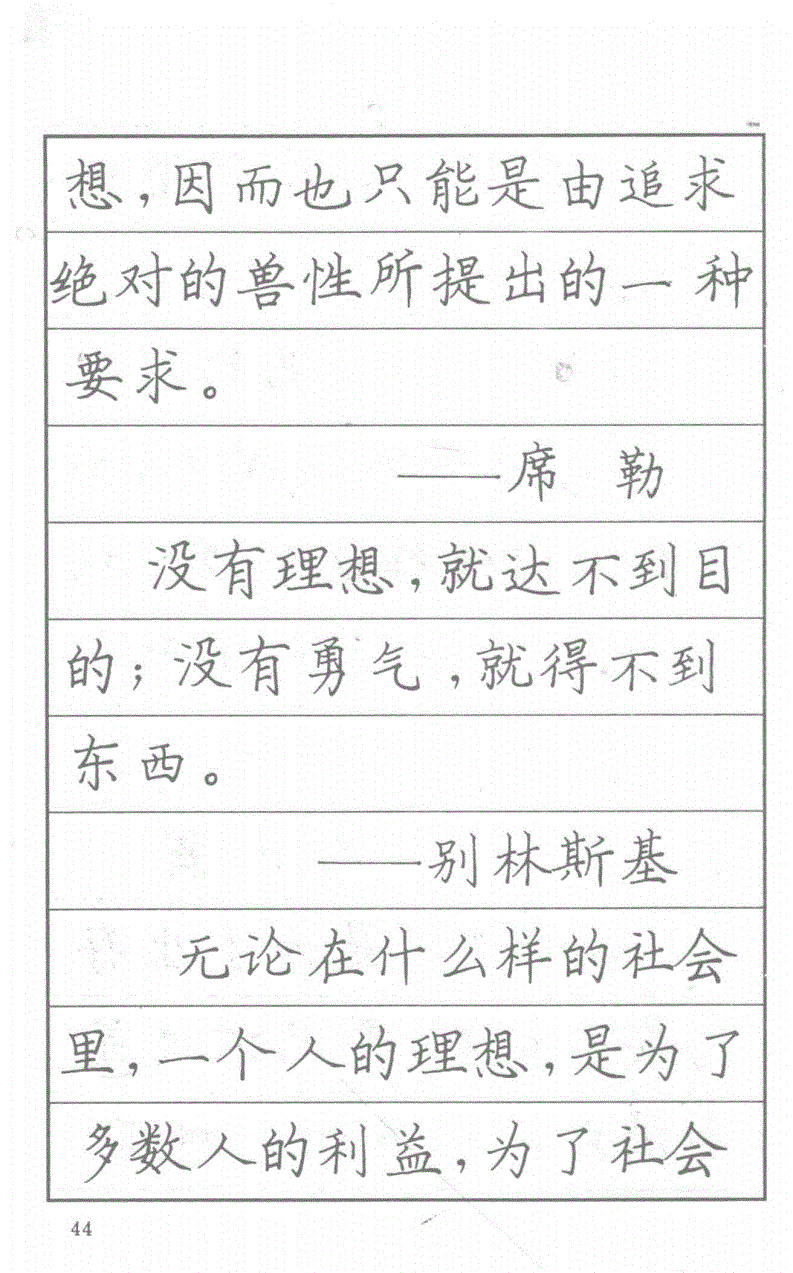 想，因而也只能是由追求
绝对的兽性所提出的一种
要求。
——席 勒
没有理想，就达不到目
的；没有勇气，就得不到
东西。
——别林斯基
无论在什么样的社会
里，一个人的理想，是为了
多数人的利益，为了社会
44